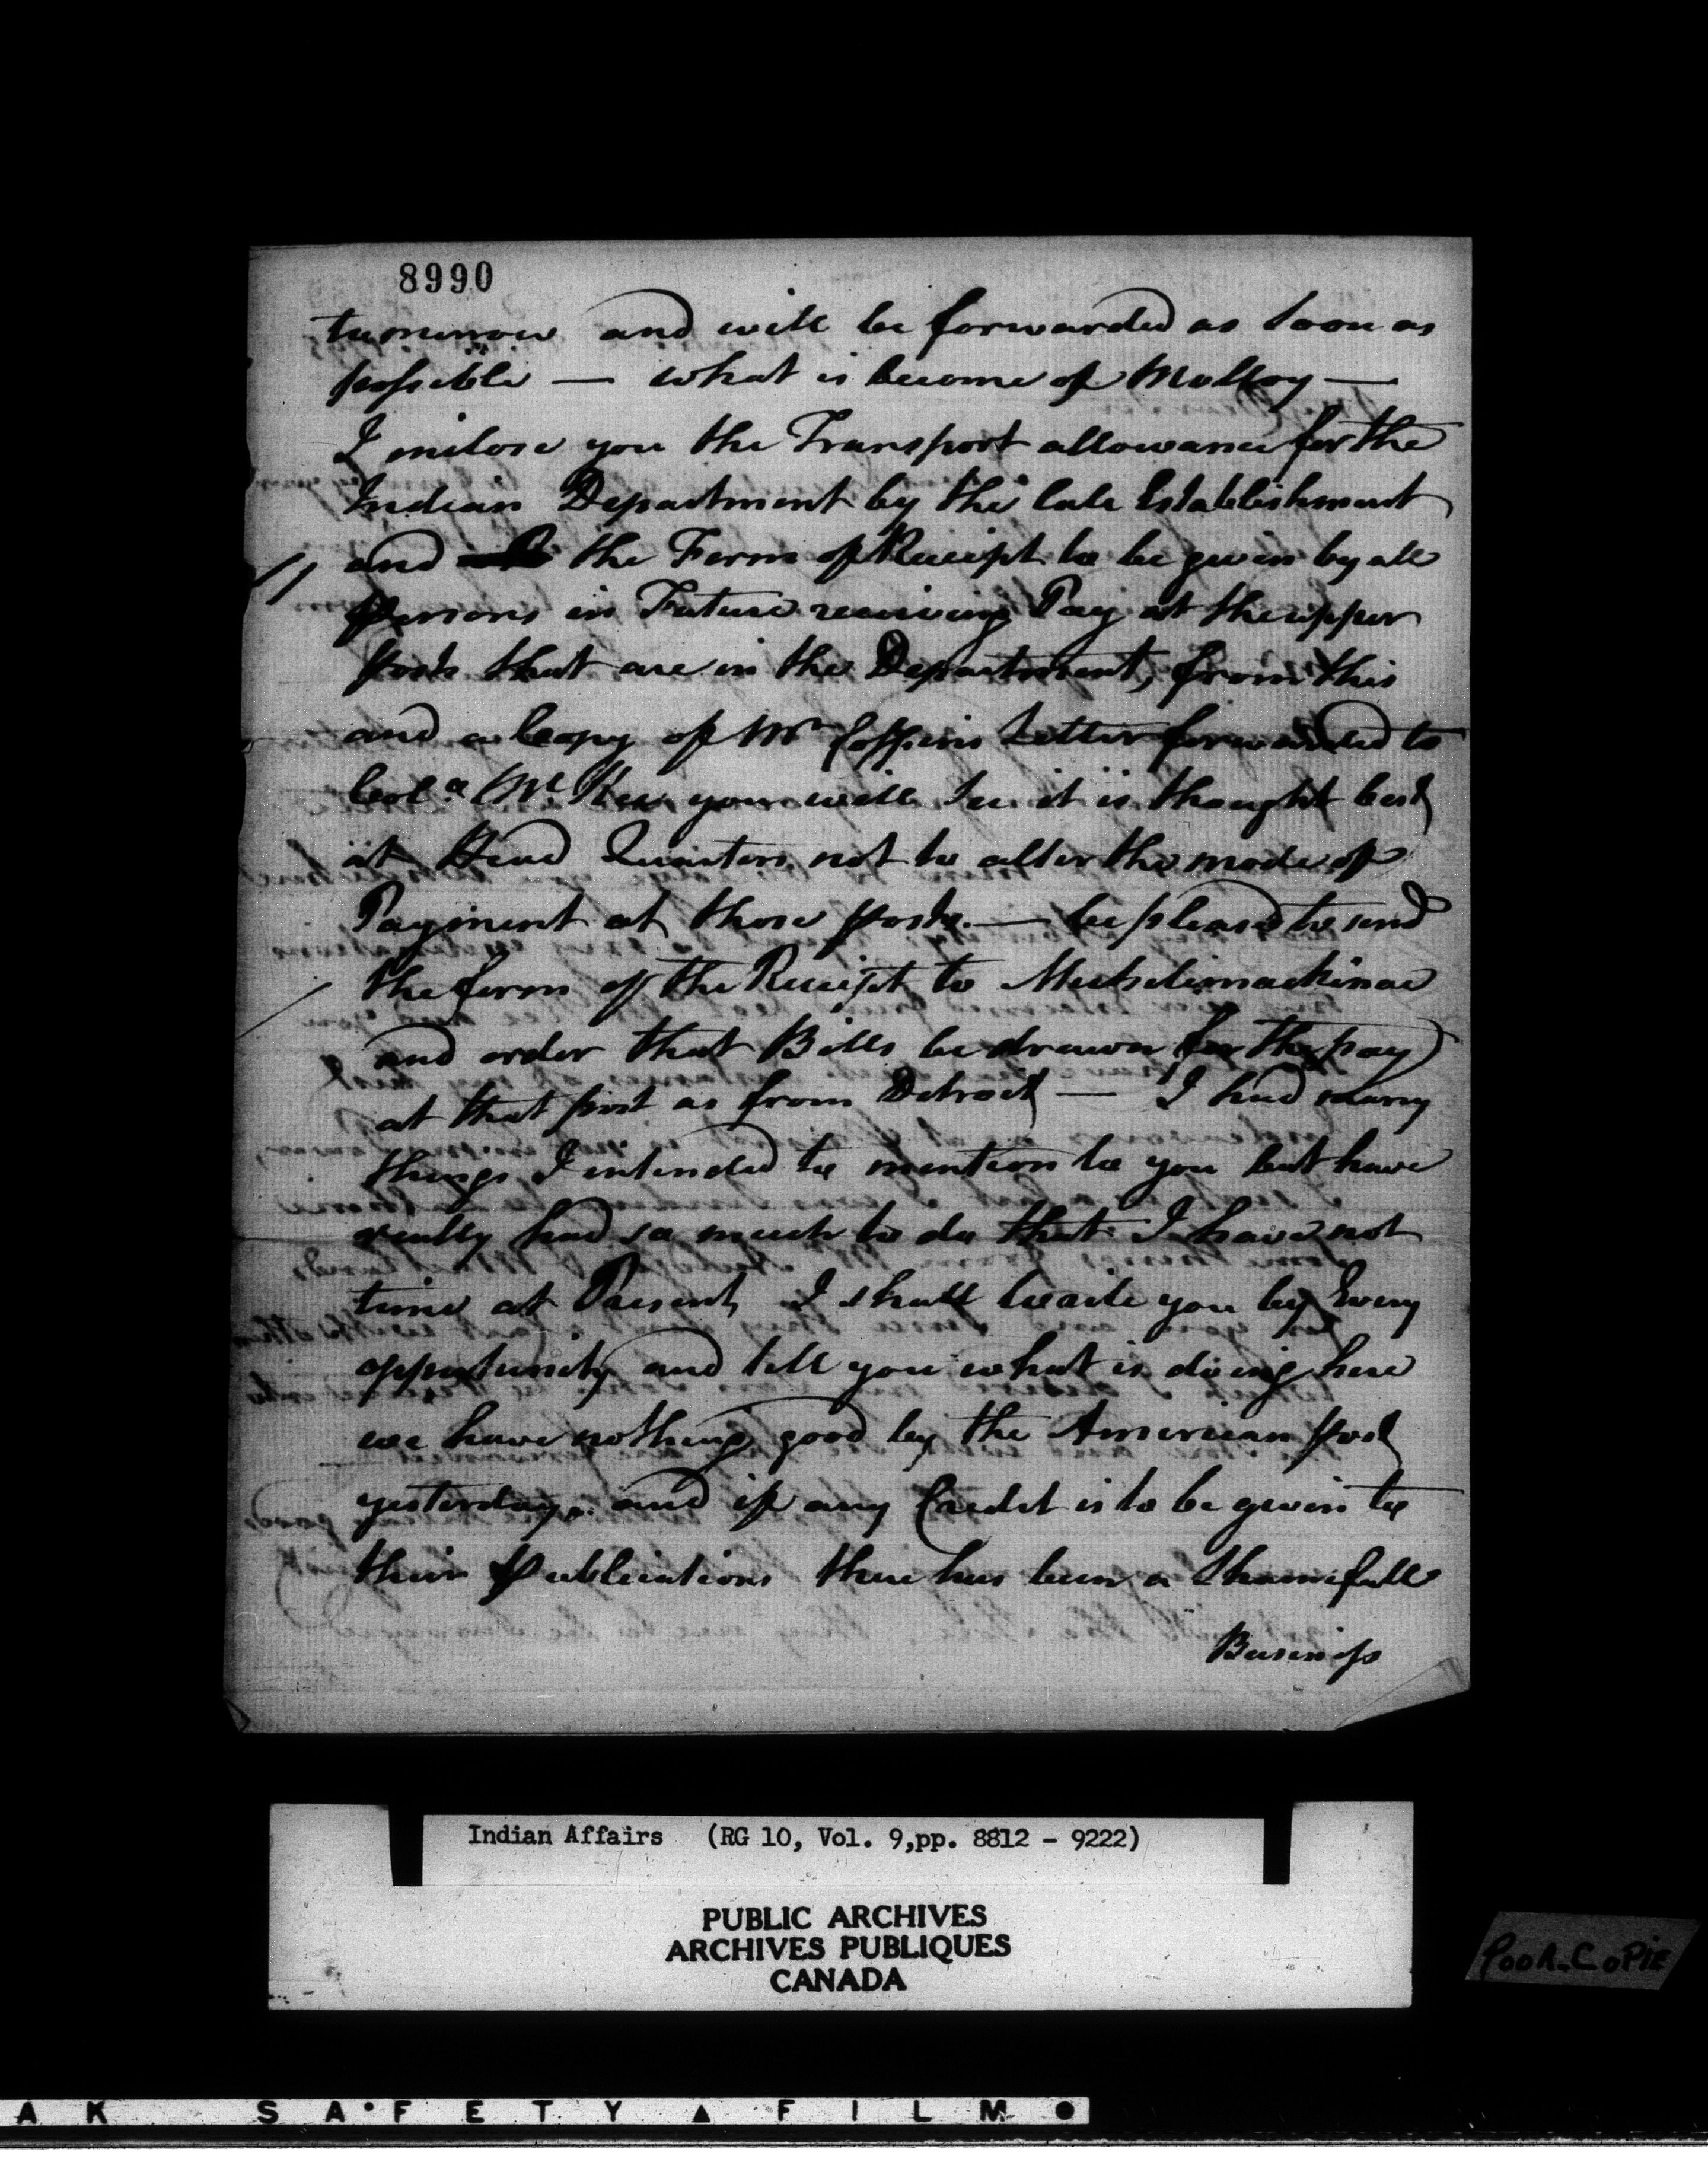 8990
tomorrow and will be forwarded as soon as
possible — what is become of Molloy —
I inclose you the Transport allowance for the
Indian Department by the late Establishment
and the Form of Receipt to be given by all
Persons in Future receiving Pay at the upper
Posts that are in the Department, from this
and a Copy of Mr Coffins Letter forwarded to
Col.o McKee you will see it is thought best
at Head Quarters not to alter the mode of
Payment at those Posts. — be pleased to send
the form of the Receipt to Michilimackinac
and order that Bills be drawn for the pay
at that post as from Detroit — I had many
things I intended to mention to you but have
really had so much to do that I have not
time at Present, I shall write you by Every
opportunity and tell you what is doing here
we have nothing good by the American post
yesterday. and if any Credit is to be given to
their Publications there has been a shamefull
Business
Indian Affairs (RG 10, Vol. 9, pp. 8812 - 9222)
PUBLIC ARCHIVES
ARCHIVES PUBLIQUES
CANADA
POOR COPIE
AK SAFETY ▲ FILM ●